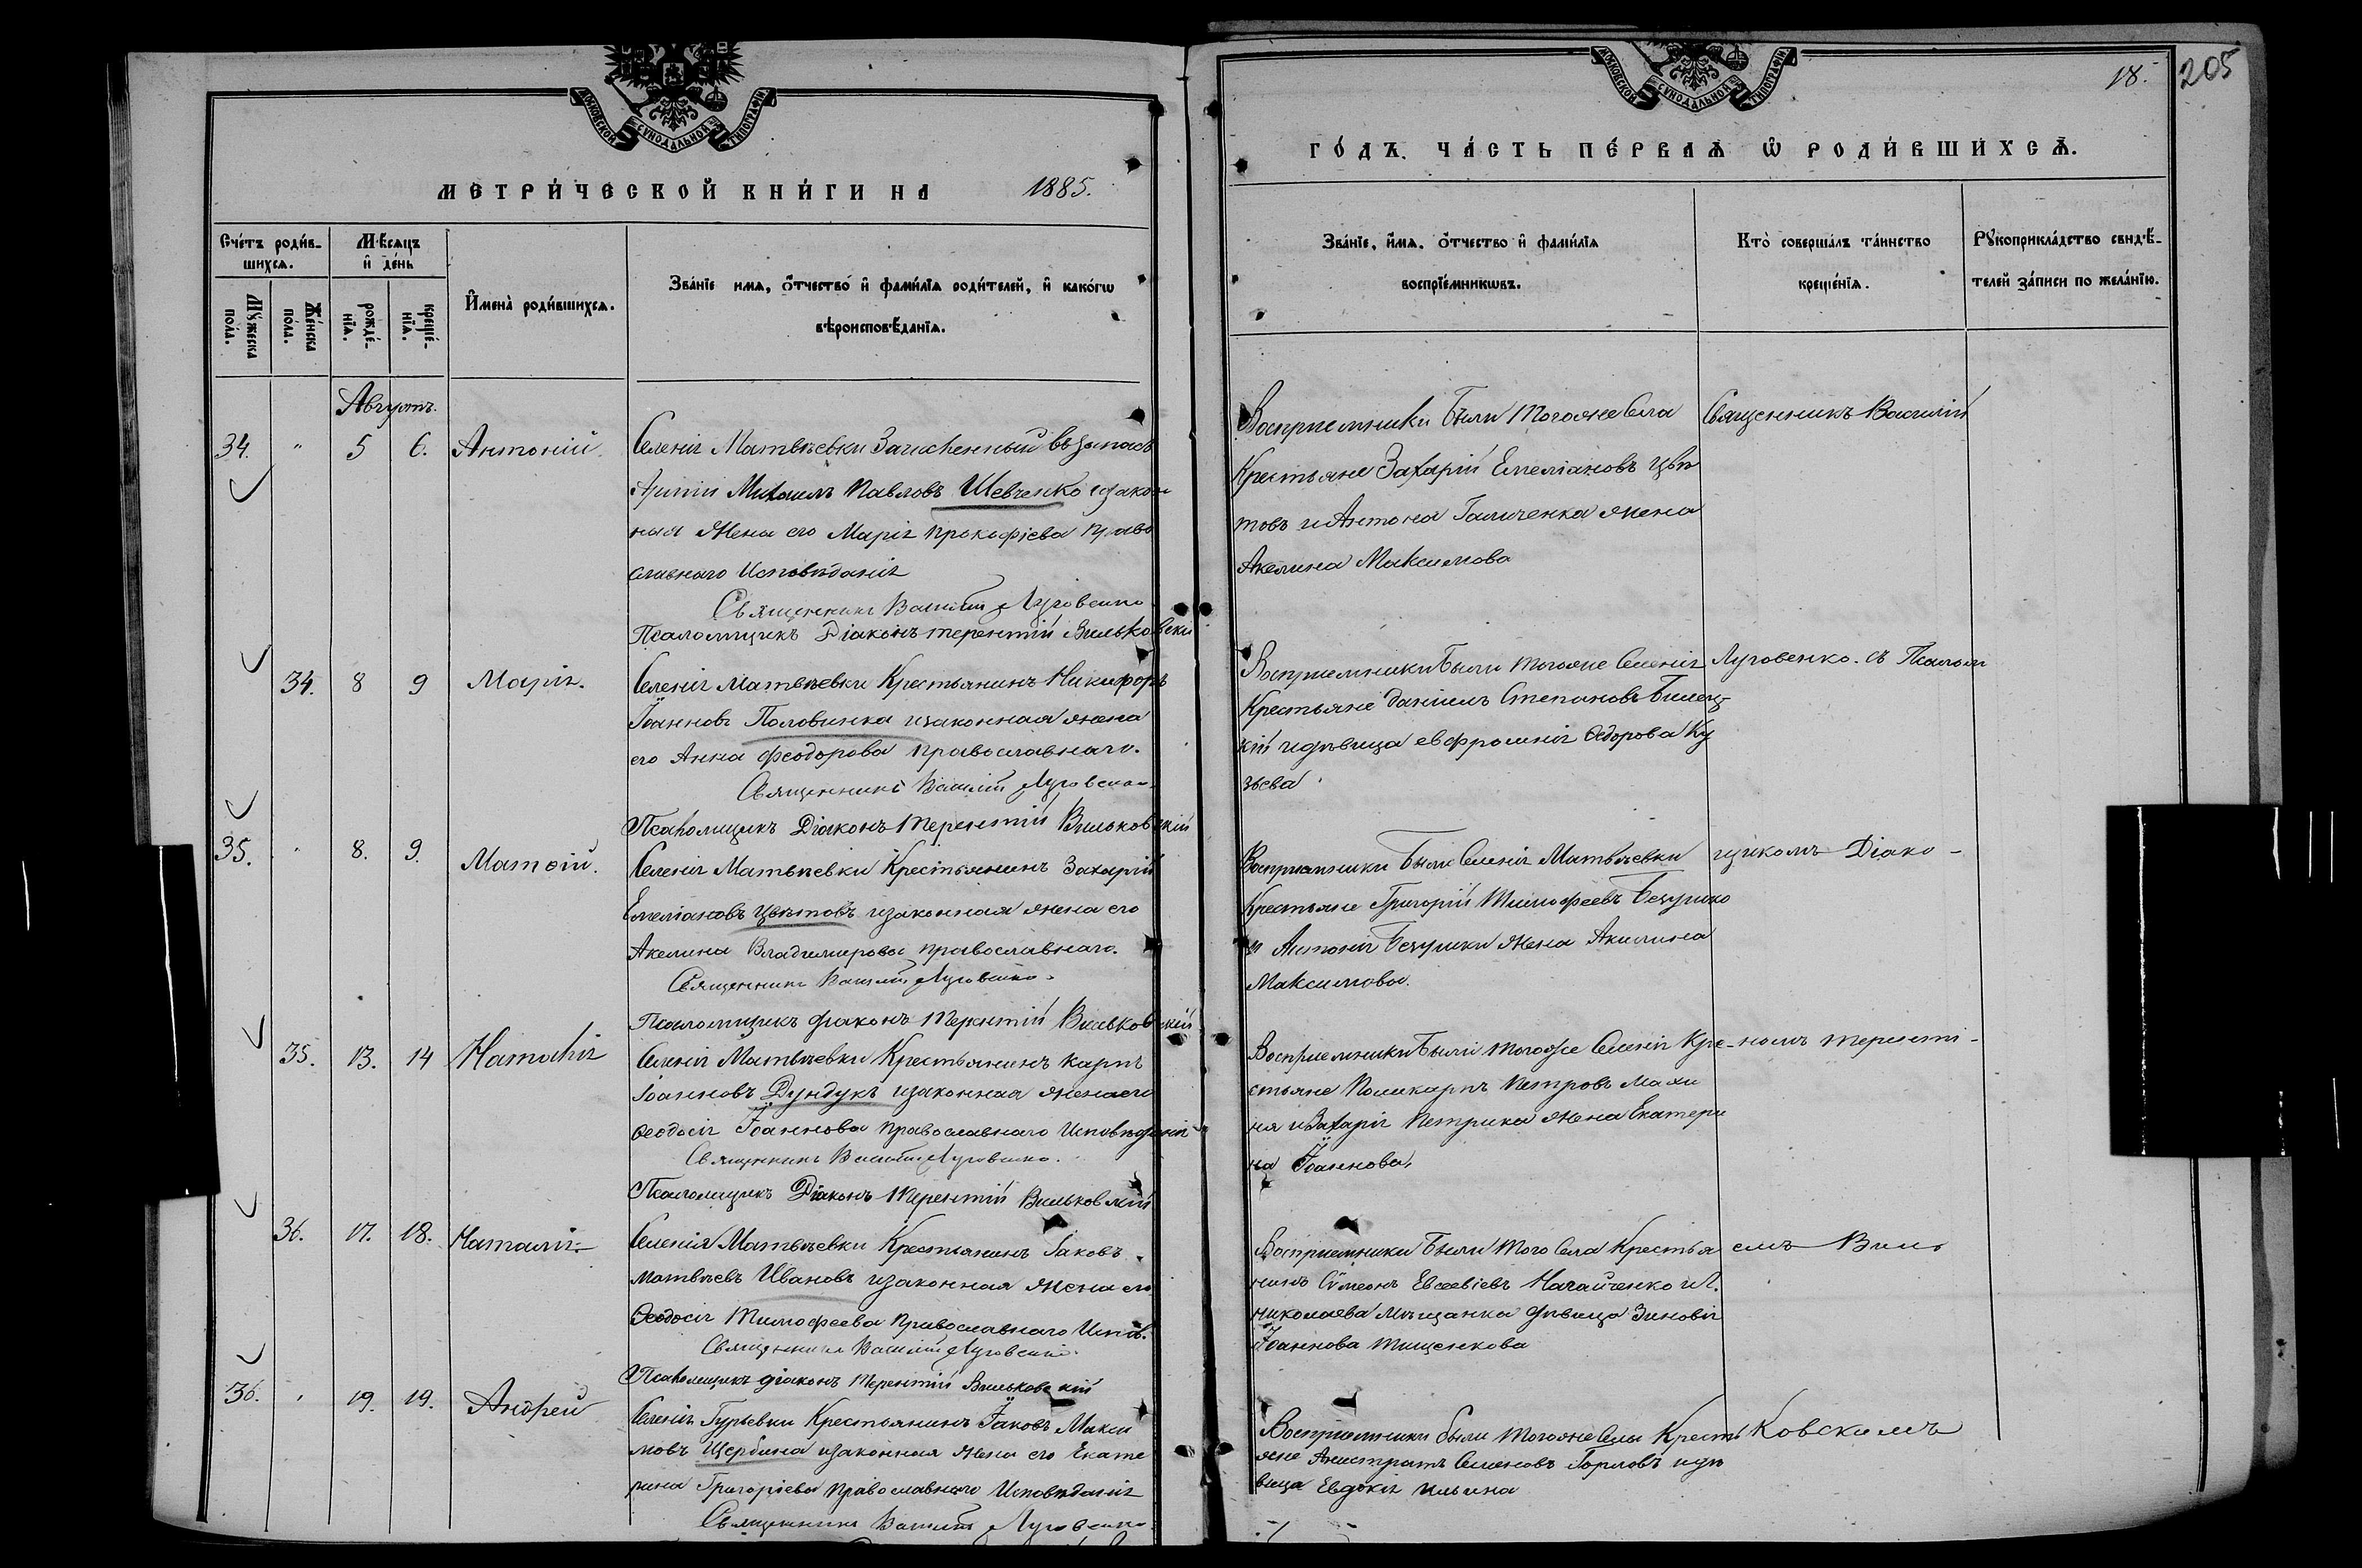 МОСКОВСКОЙ СѴНОДАЛЬНОЙ ТИПОГРАФІИ
МЕТРИ́ЧЕСКОЙ КНИ́ГИ НА 1885.
Сче́тъ роди́в-
шихся.
Мѣ́сяцъ
и҆ де́нь
Мꙋ́жеска
по́ла.
Же́нска
по́ла.
рожде́-
нїѧ.
креще́-
нїѧ.
И҆мена̀ роди́вшихсѧ.
Зва́нїе имѧ, ѻ҆́тчество и҆ фами́лїѧ роди́телей, и҆ како́гѡ
вѣроисповѣ́данїѧ.
Августъ.
34. " 5 6. Антоній
Селенія Матвѣевки Зачисленный въ запасъ
Арміи Михаилъ Павловъ Шевченко и закон
ная Жена его Марія Прокофіева Право
славнаго Исповѣданія
Священникъ Василій Луговенко
Псаломщикъ Діаконъ Терентій Вильковскій
34. 8 9 Марія.
Селенія Матвѣевки Крестьянинъ Никифоръ
Іоанновъ Половинка и законная жена
его Анна Феодорова Православнаго.
Священникъ Василій Луговенко.
Псаломщикъ Діаконъ Терентій Вильковскій
35. " 8. 9. Матѳій.
Селенія Матвѣевки Крестьянинъ Захарій
Емеліановъ Цвѣтовъ и законная жена его
Акелина Владимирова православнаго.
Священникъ Василій Луговенко.
Псаломщикъ діаконъ Терентій Вильковскій
35. 13. 14 Наталія
Селенія Матвѣевки Крестьянинъ Карпъ
Іоанновъ Дундукъ и законная жена его
Ѳеодосія Іоаннова православнаго Исповѣданія
Священникъ Василій Луговенко.
Псаломщикъ Діаконъ Терентій Вильковскій
36. 17. 18. Наталія.
Селенія Матвѣевки Крестьянинъ Іаковъ
Матвѣевъ Ивановъ и законная жена его
Ѳеодосія Тимофеева Православнаго Испов.
Священникъ Василій Луговенко.
Псаломщикъ діаконъ Терентій Вильковскій
36. " 19. 19. Андрей
Селенія Гурьевки Крестьянинъ Іаковъ Макси
мовъ Щербина и законная жена его Екате
рина Григоріева Православнаго Исповѣданія
Священникъ Василій Луговенко.
МОСКОВСКОЙ СѴНОДАЛЬНОЙ ТИПОГРАФІИ
18. 205
ГО́ДЪ. ЧА́СТЬ ПЕ́РВАѦ Ѡ҆ РОДИ́ВШИХСѦ.
Зва́нїе, и҆́мѧ, ѻ҆́тчество и҆ фами́лїѧ
воспрїе́мникѡвъ.
Кто̀ соверша́лъ та́инство
креще́нїѧ.
Рꙋкоприкла́дство свидѣ́-
телей за́писи по жела́нїю.
Восприемники были того же Села
Крестьяне Захарій Емеліановъ Цвѣ
товъ и Антона Галиченка жена
Акелина Максимова
Восприемники были того же Селенія
Крестьяне Даніилъ Степановъ Билец-
кій и дѣвица Евфросинія Ѳедорова Ку
зьева
Восприемники были Селенія Матвѣевки
Крестьяне Григорій Тимофеевъ
и Антонія жена Акилина
Максимова.
Восприемники были того же Селенія Кре-
стьяне Поликарпъ Петровъ Махи
ня и Захарія Петрика жена Екатери
на Іоаннова,
Восприемники были того Села Крестья
нинъ Сѵмеонъ Евсевіевъ Начайченко и
Николаева мѣщанка дѣвица Зиновія
Іоаннова Тищенкова
Восприемники были того же Села Кресть
яне Семеновъ Горловъ и дѣ
вица Евдокія Ильина
Священникъ Василій
Луговенко. съ Псалом
щикомъ Діако-
номъ Теренті-
емъ Виль
Ковскимъ